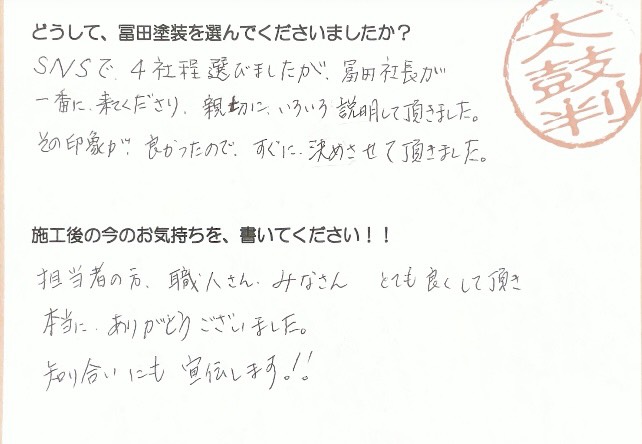 どうして、冨田塗装を選んでくださいましたか？
太鼓判
SNSで、4社程選びましたが、冨田社長が
一番に、来てくださり、親切に、いろいろ説明して頂きました。
その印象が、良かったので、すぐに、決めさせて頂きました。
施工後の今のお気持ちを、書いてください！！
担当者の方、職人さん、みなさん とても良くして頂き
本当に、ありがとうございました。
知り合いにも宣伝します!!